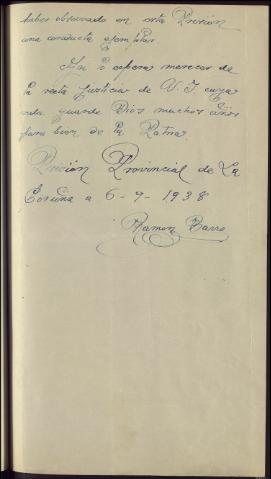 haber observado en esta Prisión
una conducta ejemplar.
espera merecer de
la recta Justicia de V. I. cuya
vida guarde Dios muchos años
para bien de la Patria.
Prisión Provincial de La
Coruña a 6-9-1938
Ramon Barro